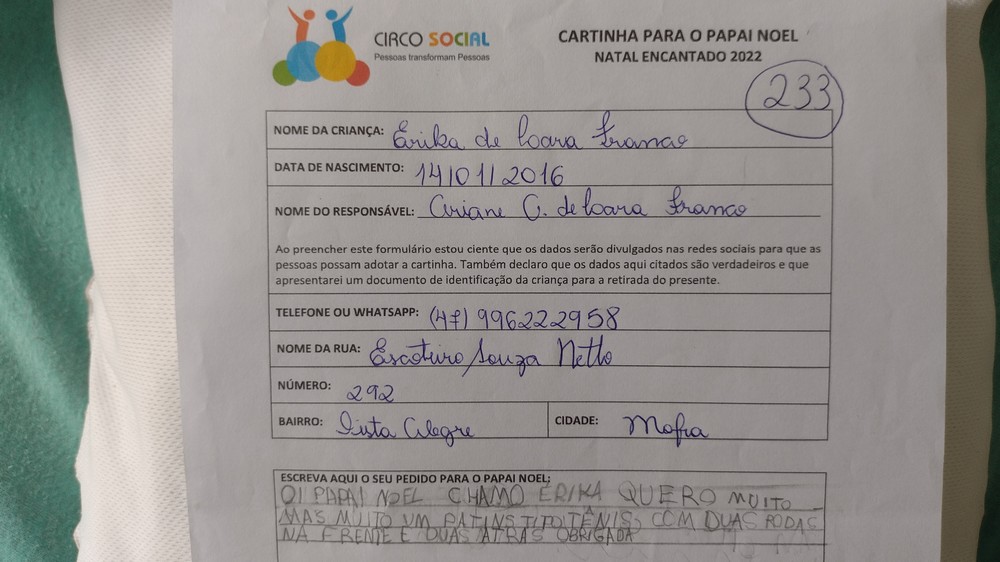 CIRCO SOCIAL
Pessoas transformam Pessoas
CARTINHA PARA O PAPAI NOEL
NATAL ENCANTADO 2022
233
NOME DA CRIANÇA: Erika de Loara Franco
DATA DE NASCIMENTO: 14/01/2016
NOME DO RESPONSÁVEL: Ariane C. de Loara Franco
Ao preencher este formulário estou ciente que os dados serão divulgados nas redes sociais para que as
pessoas possam adotar a cartinha. Também declaro que os dados aqui citados são verdadeiros e que
apresentarei um documento de identificação da criança para a retirada do presente.
TELEFONE OU WHATSAPP: (47) 996222958
NOME DA RUA: Souza Netto
NÚMERO: 292
BAIRRO: Vista Alegre CIDADE: Mafra
ESCREVA AQUI O SEU PEDIDO PARA O PAPAI NOEL:
OI PAPAI NOEL CHAMO ERIKA QUERO MUITO
MAS MUITO UM PATINS TIPO TÊNIS, COM DUAS RODAS
NA FRENTE E DUAS ATRAS OBRIGADA